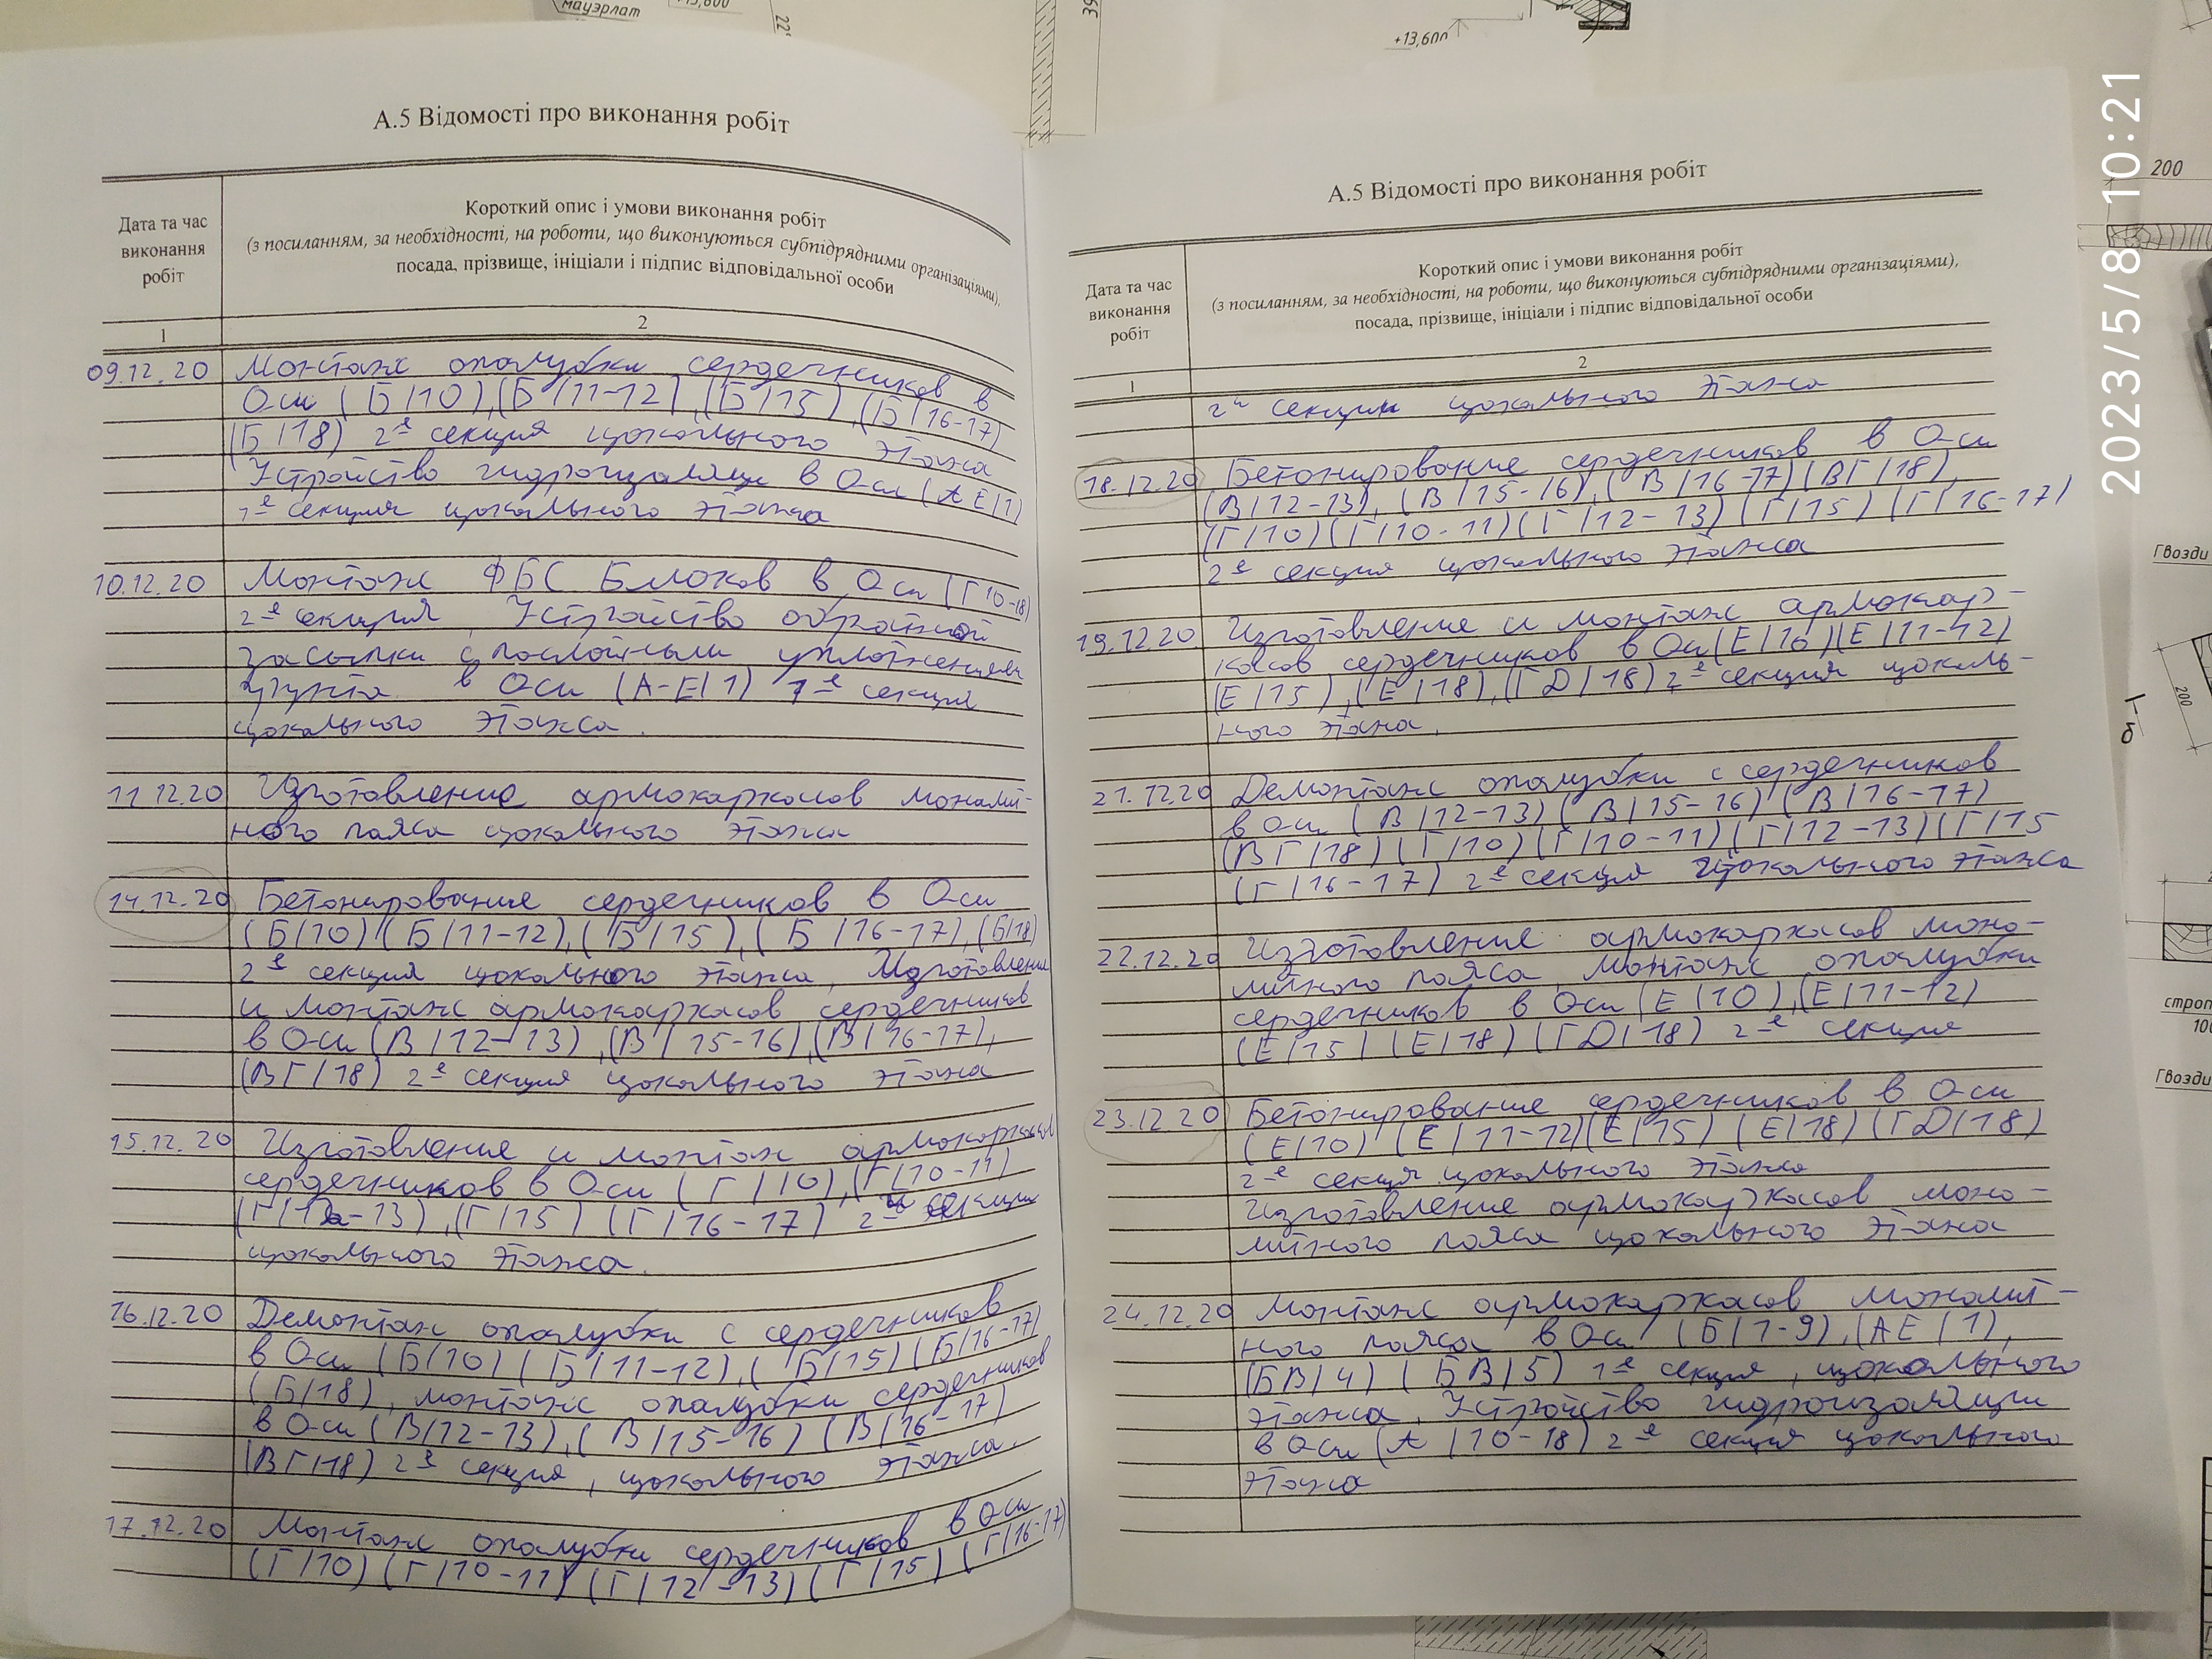 мауэрлат
+13,600
+13,600
А.5 Відомості про виконання робіт
Дата та час
виконання
робіт
Короткий опис і умови виконання робіт
(з посиланням, за необхідності, на роботи, що виконуються субпідрядними організаціями),
посада, прізвище, ініціали і підпис відповідальної особи
1
2
09.12.20 Монтаж опалубки сердечников в
Оси (Б/10),(Б/11-12),(Б/15),(Б/16-17)
(Б/18) 2-я секция цокольного этажа
Устройство гидроизоляции в Оси (АЕ/1)
1-я секция цокольного этажа
10.12.20 Монтаж ФБС Блоков в Оси (Г10-18)
2-я секция, Устройство обратной
засыпки с послойным уплотнением
грунта в Оси (А-Е/1) 1-я секция
цокольного этажа.
11.12.20 Изготовление армокаркасов монолит-
ного пояса цокольного этажа
14.12.20 Бетонирование сердечников в Оси
(Б/10)(Б/11-12),(Б/15),(Б/16-17),(Б/18)
2-я секция цокольного этажа, Изготовление
и монтаж армокаркасов сердечников
в Оси (В/12-13),(В/15-16),(В/16-17),
(ВГ/18) 2-я секция цокольного этажа
15.12.20 Изготовление и монтаж армокаркасов
сердечников в Оси (Г/10),(Г/10-11)
(Г/12-13),(Г/15)(Г/16-17) 2-й секции
цокольного этажа.
16.12.20 Демонтаж опалубки с сердечников
в Оси (Б/10)(Б/11-12),(Б/15)(Б/16-17)
(Б/18), монтаж опалубки сердечников
в Оси (В/12-13),(В/15-16)(В/16-17)
(ВГ/18) 2-я секция, цокольного этажа.
17.12.20 Монтаж опалубки сердечников в Оси
(Г/10)(Г/10-11)(Г/12-13)(Г/15)(Г/16-17)
А.5 Відомості про виконання робіт
Дата та час
виконання
робіт
Короткий опис і умови виконання робіт
(з посиланням, за необхідності, на роботи, що виконуються субпідрядними організаціями),
посада, прізвище, ініціали і підпис відповідальної особи
1
2
2-й секции цокольного этажа
18.12.20 Бетонирование сердечников в Оси
(В/12-13),(В/15-16),(В/16-17)(ВГ/18),
(Г/10)(Г/10-11)(Г/12-13)(Г/15)(Г/16-17)
2-я секция цокольного этажа
19.12.20 Изготовление и монтаж армокар-
касов сердечников в Оси(Е/10)(Е/11-12)
(Е/15),(Е/18),(ГД/18) 2-я секция цоколь-
ного этажа.
21.12.20 Демонтаж опалубки с сердечников
в Оси (В/12-13)(В/15-16)(В/16-17)
(ВГ/18)(Г/10)(Г/10-11)(Г/12-13)(Г/15
(Г/16-17) 2-я секция цокольного этажа
22.12.20 Изготовление армокаркасов моно-
литного пояса, монтаж опалубки
сердечников в Оси (Е/10),(Е/11-12)
(Е/15)(Е/18)(ГД/18) 2-я секция
23.12.20 Бетонирование сердечников в Оси
(Е/10)(Е/11-12)(Е/15)(Е/18)(ГД/18)
2-я секция цокольного этажа
Изготовление армокаркасов моно-
литного пояса цокольного этажа
24.12.20 Монтаж армокаркасов монолит-
ного пояса в Оси (Б/1-9),(АЕ/1),
(БВ/4)(БВ/5) 1-я секция, цокольного
этажа, Устройство гидроизоляции
в Оси (А/10-18) 2-я секция цокольного
этажа
2023/5/8 10:21
200
Гвозди
200
строп
Гвозди